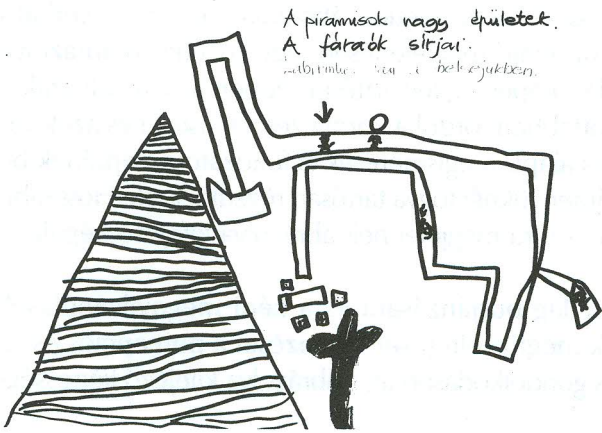 A piramisok nagy épületek.
A fáraók sírjai.
labirintus van a belsejükben.